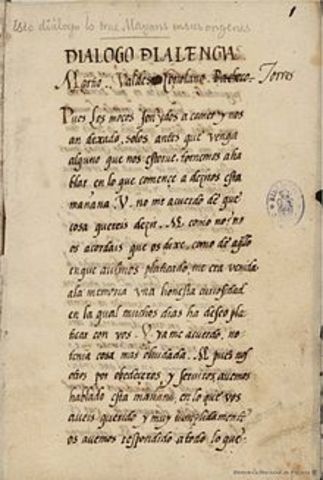 Este diálogo lo trae Mayans en sus orígenes
1
DIALOGO D LA LENGVA
Marçio. Valdes. Coriolano. Pacheco. Torres
Pues los moços son ydos a comer y nos
an dexado solos antes que venga
alguno que nos estorue, tornemos a ha
blar en lo que començe a deziros esta
mañana. V. no me acuerdo de que
cosa quereis dezir. M. como no? no
os acordais que os dixe, como de aq̃llo
en que auiamos platicado, me era venida
a la memoria vna honesta curiosidad
en la qual muchos dias ha deseo pla
ticar con vos. V. ya me acuerdo, no
tenia cosa mas oluidada. M. pues nos
otros por obedeçeros y seruiros auemos
hablado esta mañana en lo que vos
aueis querido y muy cumplidamente
os auemos respondido a todo lo que